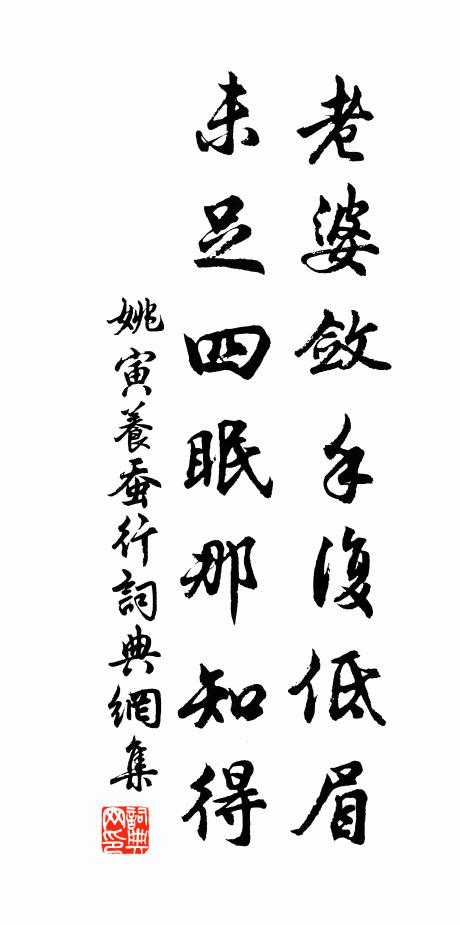 老婆斂手復低眉
未足四眠那知得
姚寅養蚕行詞典網集
詞典网印